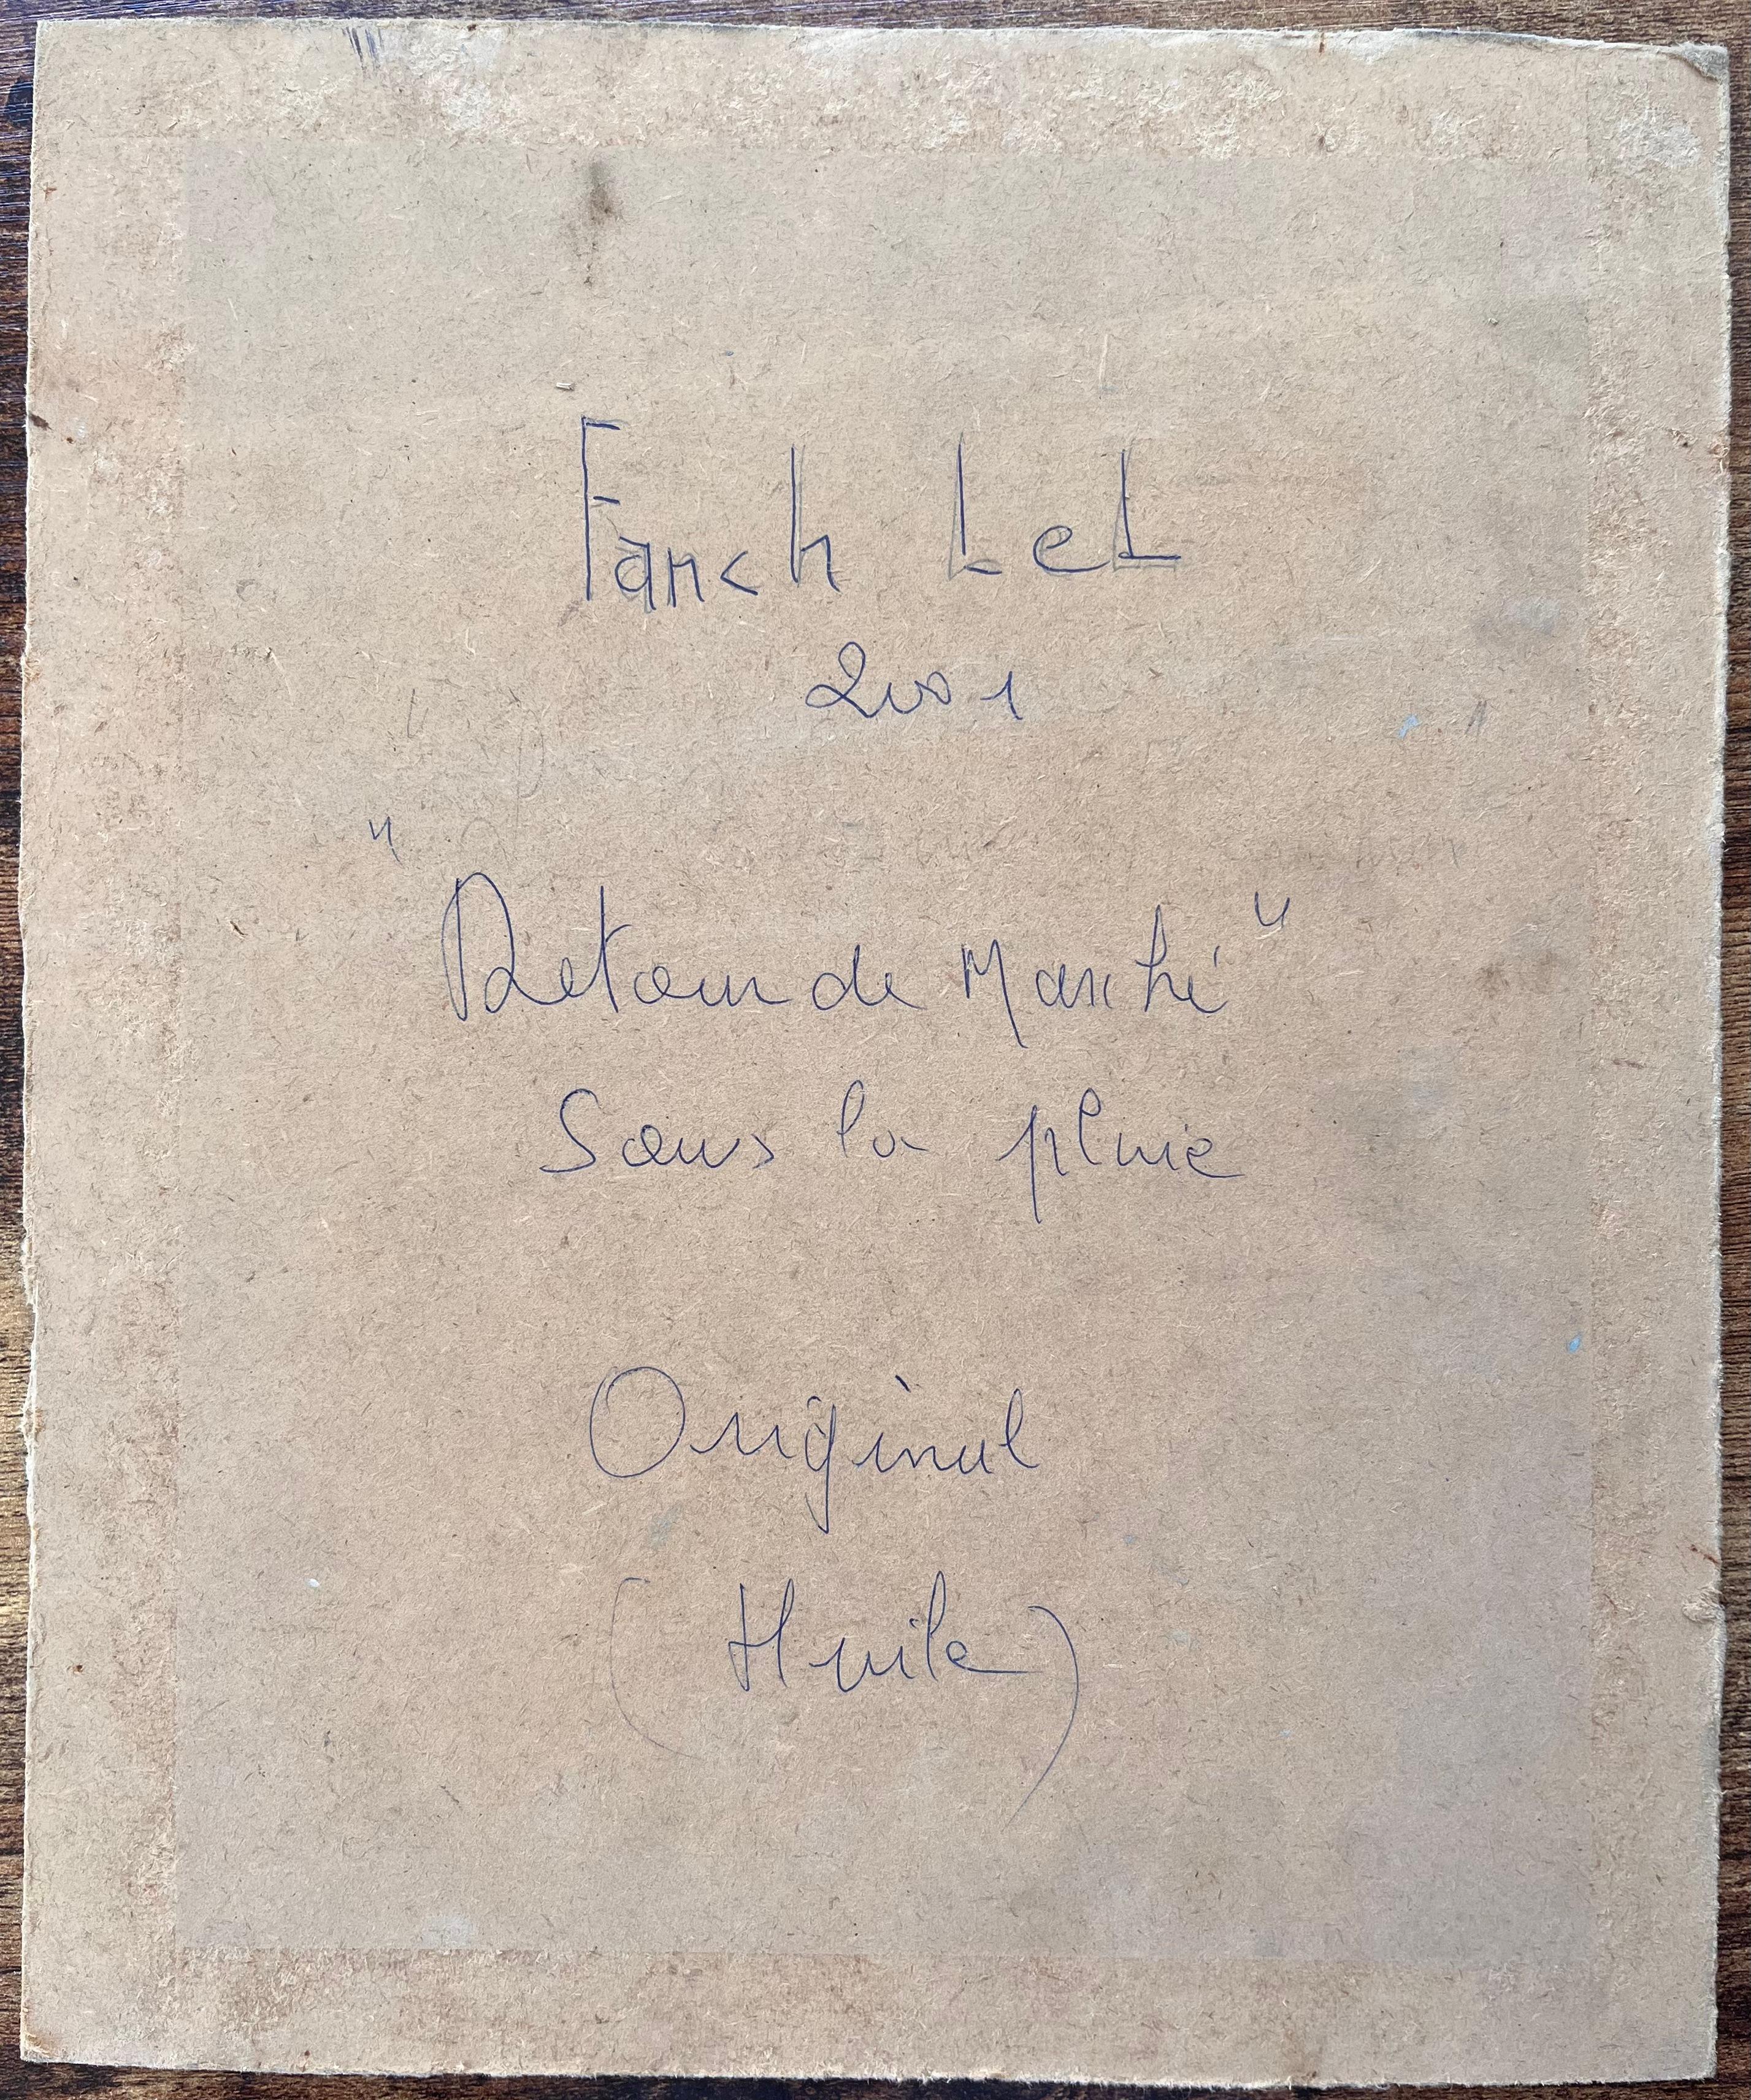 Fanch LeL
2001
"Retour de Marché"
Sous la pluie
Original
(Huile)